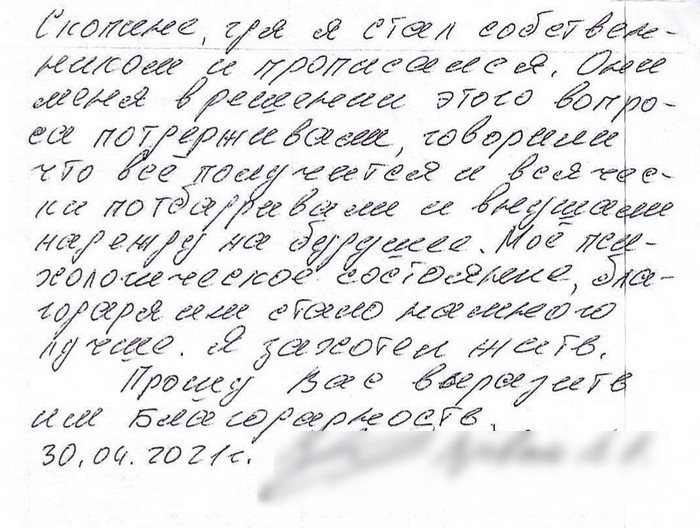 Скопине, где я стал собствен-
ником и прописался. Они
меня в решении этого вопро-
са потдерживали, говорили
что всё получится и всячес-
ки потбадривали и внушали
надежду на будущее. Моё пси-
хологическое состояние, бла-
годаря им стало намного
лучше. Я захотел жить.
Прошу Вас выразить
им благодарность.
30.04.2021г.